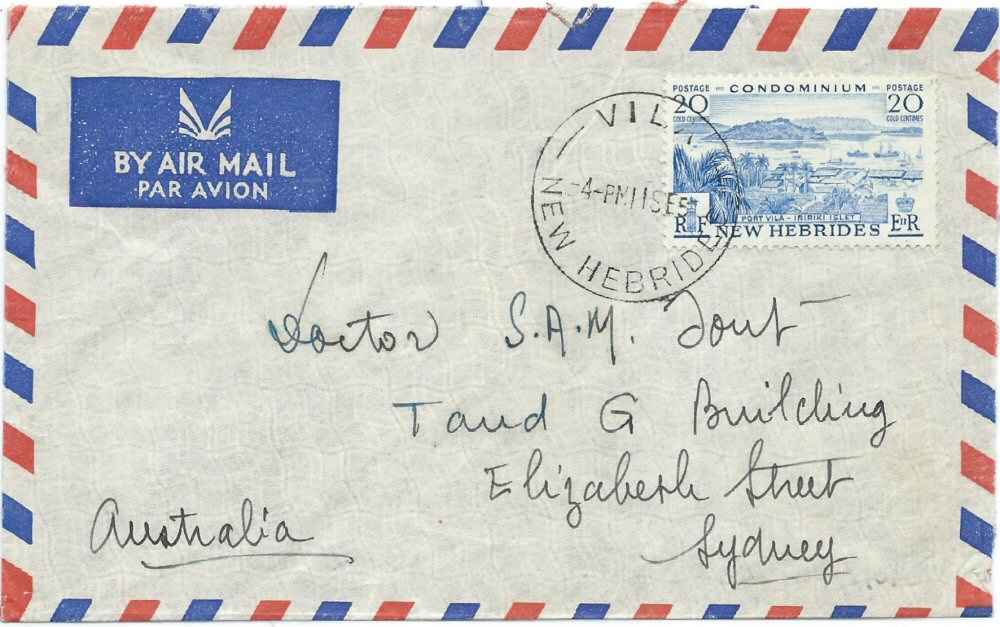 BY AIR MAIL
PAR AVION
POSTAGE CONDOMINIUM POSTAGE
20 20
GOLD CENTIMES GOLD CENTIMES
PORT VILA - IRIRIKI ISLET
RF NEW HEBRIDES EIIR
VIL
4-PM 11 SE 5
NEW HEBRIDES
Doctor S.A.M.
T and G Building
Elizabeth Street
Sydney
Australia